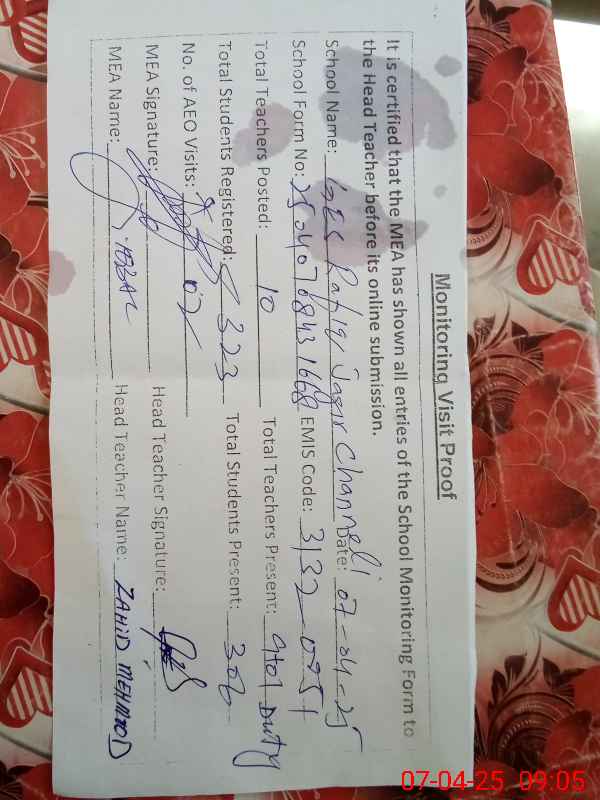 Monitoring Visit Proof
It is certified that the MEA has shown all entries of the School Monitoring Form to
the Head Teacher before its online submission.
School Name: GES Rafiq Jagir Channeli Date: 07-04-25
School Form No: EMIS Code:
Total Teachers Posted: 10 Total Teachers Present: 9+01 Duty
Total Students Registered: 323 Total Students Present: 306
No. of AEO Visits: 02
MEA Signature: Head Teacher Signature:
MEA Name: Head Teacher Name: ZAHID MEHMOOD
07-04-25 09:05